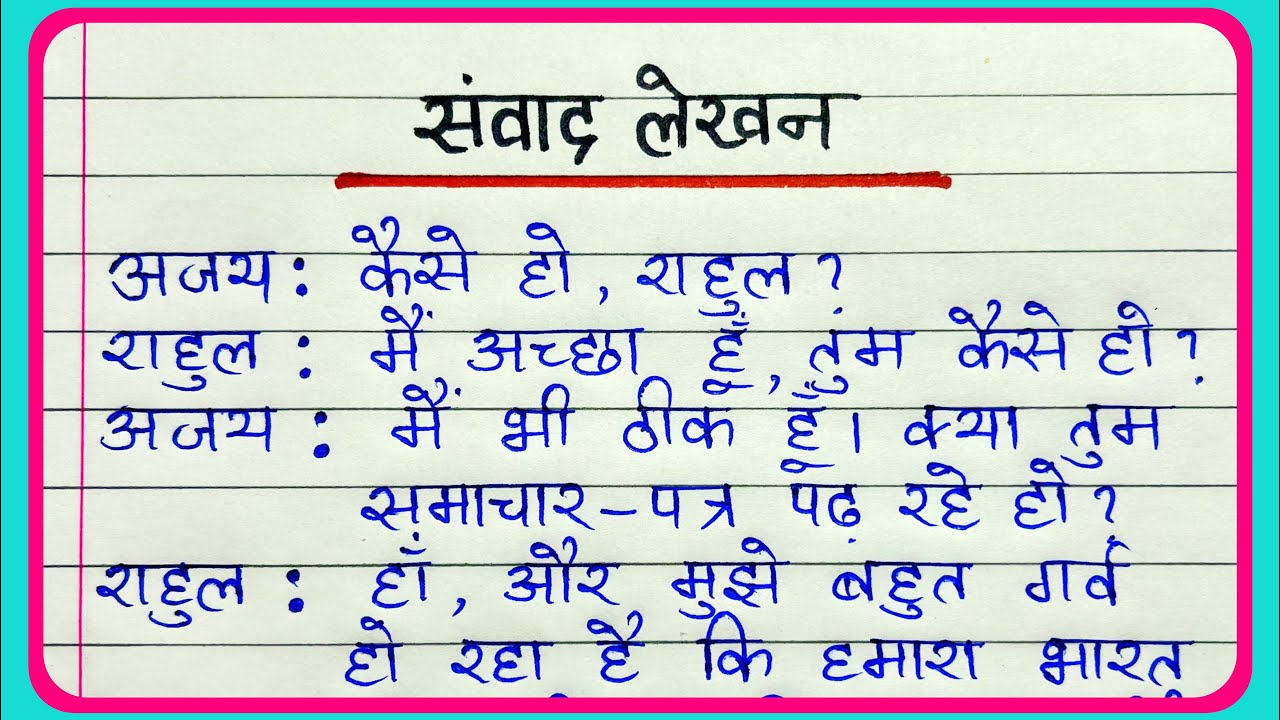 संवाद लेखन
अजय : कैसे हो, राहुल?
राहुल : मैं अच्छा हूँ, तुम कैसे हो?
अजय : मैं भी ठीक हूँ। क्या तुम
समाचार-पत्र पढ़ रहे हो?
राहुल : हाँ, और मुझे बहुत गर्व
हो रहा है कि हमारा भारत